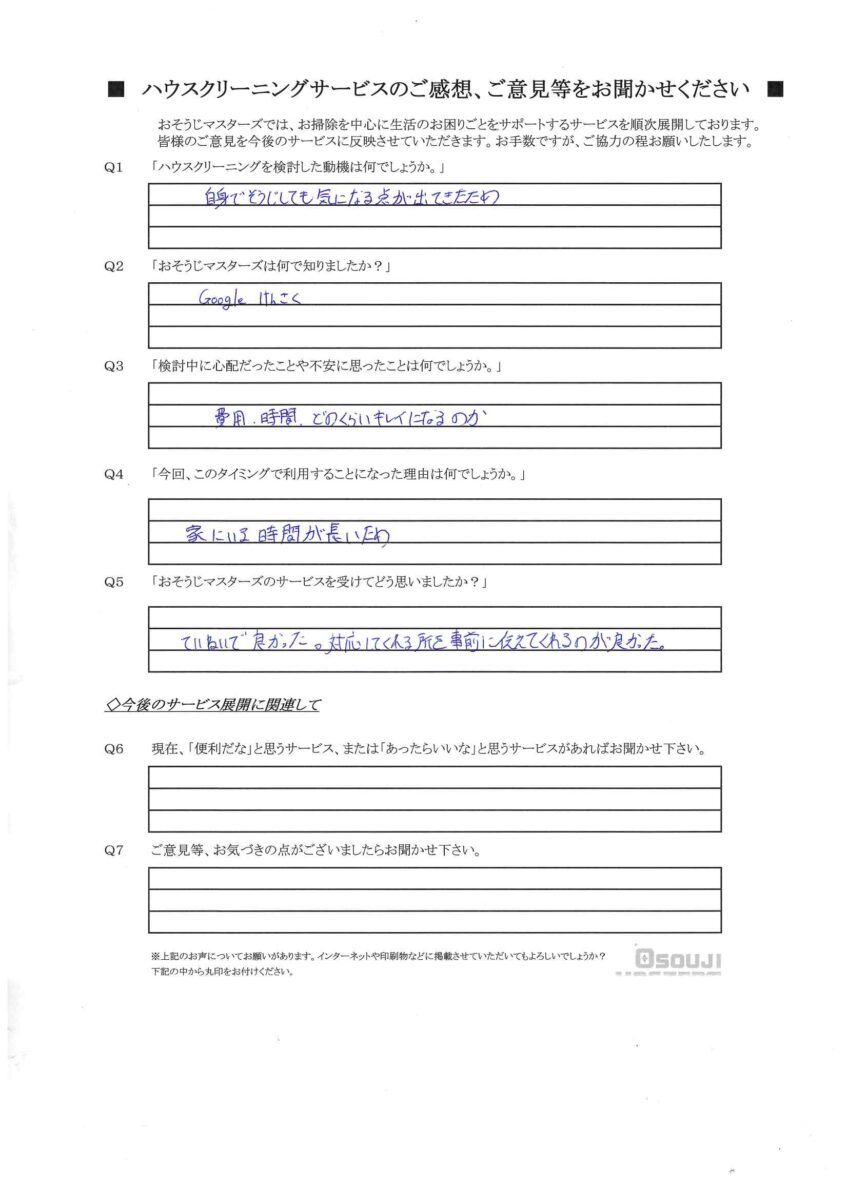 ■ ハウスクリーニングサービスのご感想、ご意見等をお聞かせください ■
おそうじマスターズでは、お掃除を中心に生活のお困りごとをサポートするサービスを順次展開しております。
皆様のご意見を今後のサービスに反映させていただきます。お手数ですが、ご協力の程お願いしたします。
Q1 「ハウスクリーニングを検討した動機は何でしょうか。」
自身でそうじしても気になる点が出てきたため
Q2 「おそうじマスターズは何で知りましたか？」
Google けんさく
Q3 「検討中に心配だったことや不安に思ったことは何でしょうか。」
費用、時間、どのくらいキレイになるのか
Q4 「今回、このタイミングで利用することになった理由は何でしょうか。」
家にいる時間が長いため
Q5 「おそうじマスターズのサービスを受けてどう思いましたか？」
ていねいで良かった。対応してくれる所を事前に伝えてくれるのが良かった。
◇今後のサービス展開に関連して
Q6 現在、「便利だな」と思うサービス、または「あったらいいな」と思うサービスがあればお聞かせ下さい。
Q7 ご意見等、お気づきの点がございましたらお聞かせ下さい。
※上記のお声についてお願いがあります。インターネットや印刷物などに掲載させていただいてもよろしいでしょうか？
下記の中から丸印をお付けください。
OSOUJI